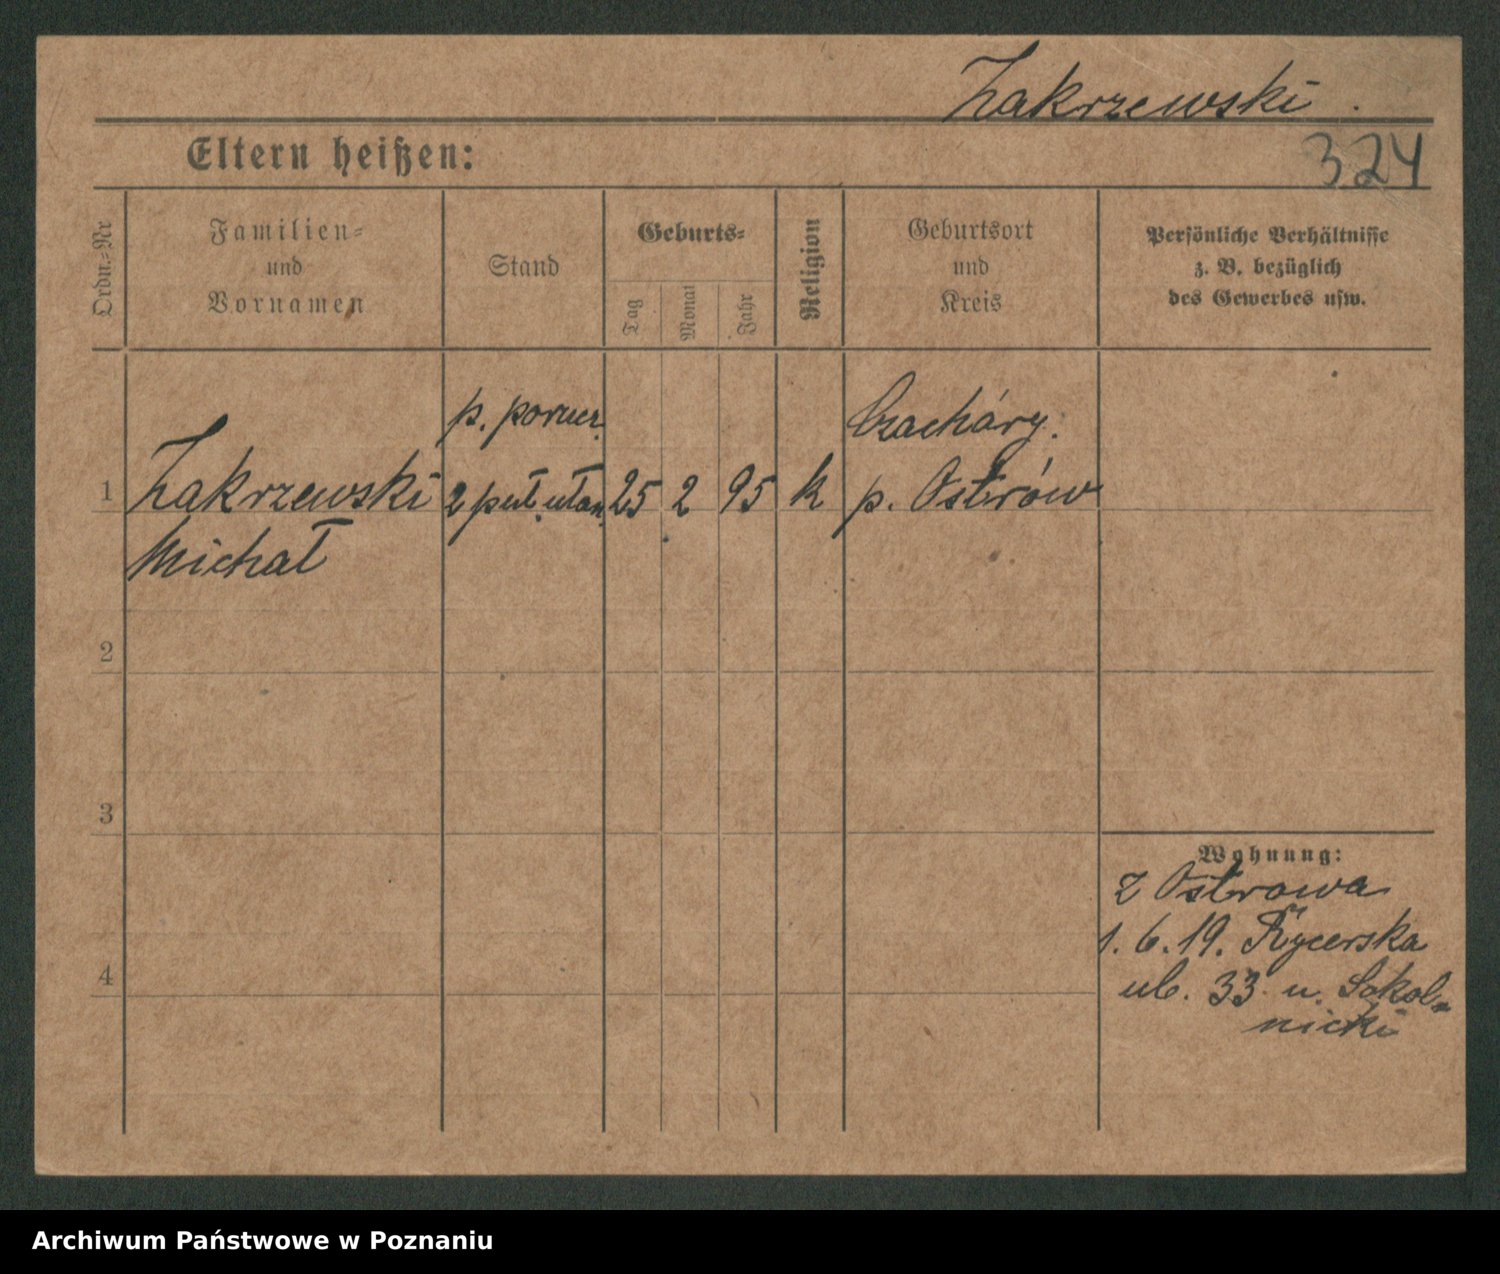 Zakrzewski.
Eltern heißen:
324
Ordn.-Nr
Familien-
und
Vornamen
Stand
Geburts-
Tag
Monat
Jahr
Religion
Geburtsort
und
Kreis
Persönliche Verhältnisse
z. B. bezüglich
des Gewerbes usw.
p. porucz. Czacháry.
1 Zakrzewski 2 puł. ułan. 25 2 95 k p. Ostrów
Michał
2
3
Wohnung:
z Ostrowa
1. 6. 19. Rycerska
4
ul. 33 u. Sokol-
nicki
Archiwum Państwowe w Poznaniu